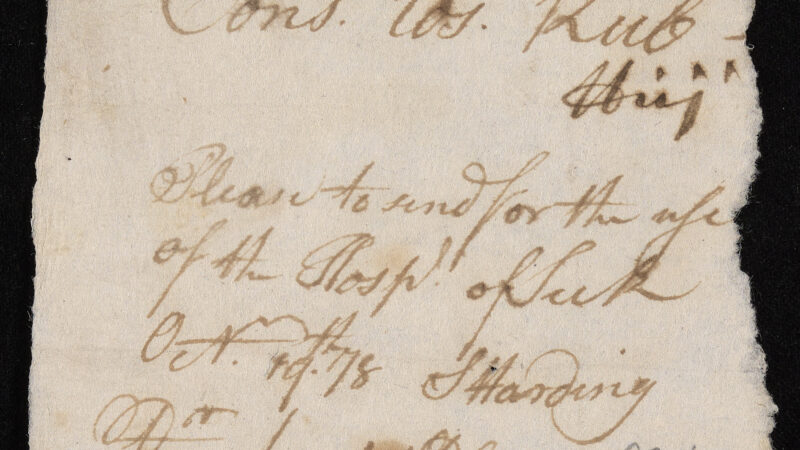 Cons. Ros. Rub
℔iij
Please to send for the use
of the Hosp.l of Sick
O N. 19.th 78 S Harding